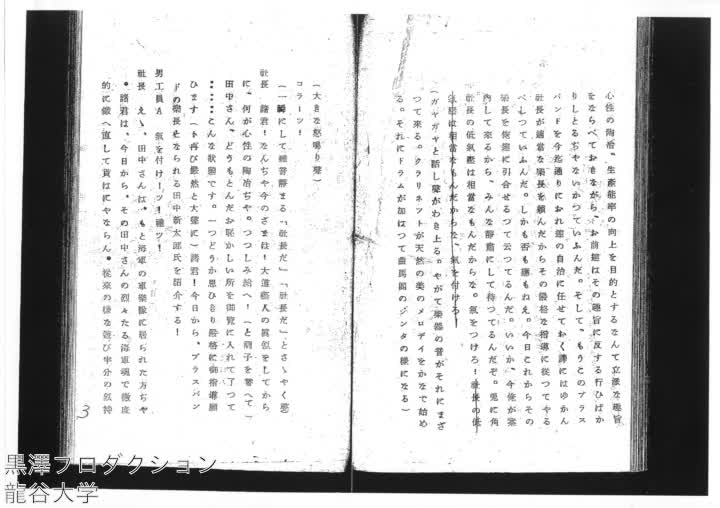 心性の陶冶、生産能率の向上を目的とするなんて立派な趣旨
をならべておきながら、お前達はその趣旨に反する行ひばか
りしとるぢやないかつていふんだ。そして、もうこのブラス
バンドを今迄通りにおれ達の自治に任せておく譯にはゆかん
社長が適當な樂長を頼んだからその嚴格な指導に從つてやる
べしつていふんだ。しかも否も應もねえ。今日これからその
樂長を俺達に引合せるつて云つてるんだ。いいか、今俺が案
内して來るから、みんな靜肅にして待つてるんだぞ。兎に角
社長の低氣壓は相當なもんだからな。氣をつけろ！社長の低
氣壓は相當なもんだからな、氣を付けろ！
（ガヤガヤと話し聲がわき上る。やがて樂器の音がそれにまざ
つて來る。クラリネットが天然の美のメロデイをかなで始め
る。それにドラムが加はつて曲馬團のジンタの樣になる）
（大きな怒鳴り聲）
コラーツ！
（一瞬にして雜音靜まる「社長だ」「社長だ」とさゝやく聲）
社長　諸君！なんぢや今のざまは！大道藝人の眞似をしてから
に、何が心性の陶冶ぢや。つつしみ給へ！（と調子を變へて）
田中さん、どうもとんだお恥かしい所を御覽に入れて了つて
……こんな狀態です。一つどうか思ひきり嚴格に御指導願
ひます（ト再び嚴然と大聲に）諸君！今日から、ブラスバン
ドの樂長となられる田中新太郎氏を紹介する！
男工員A　氣を付けーツ！禮ツ！
社長　えゝ、田中さんは、もと海軍の軍樂隊に居られた方ぢや
。諸君は、今日から、その田中さんの烈々たる海軍魂で徹底
的に鍛へ直して貰はにやならん。從來の樣な遊び半分の氣持
3
黒澤プロダクション
龍谷大学